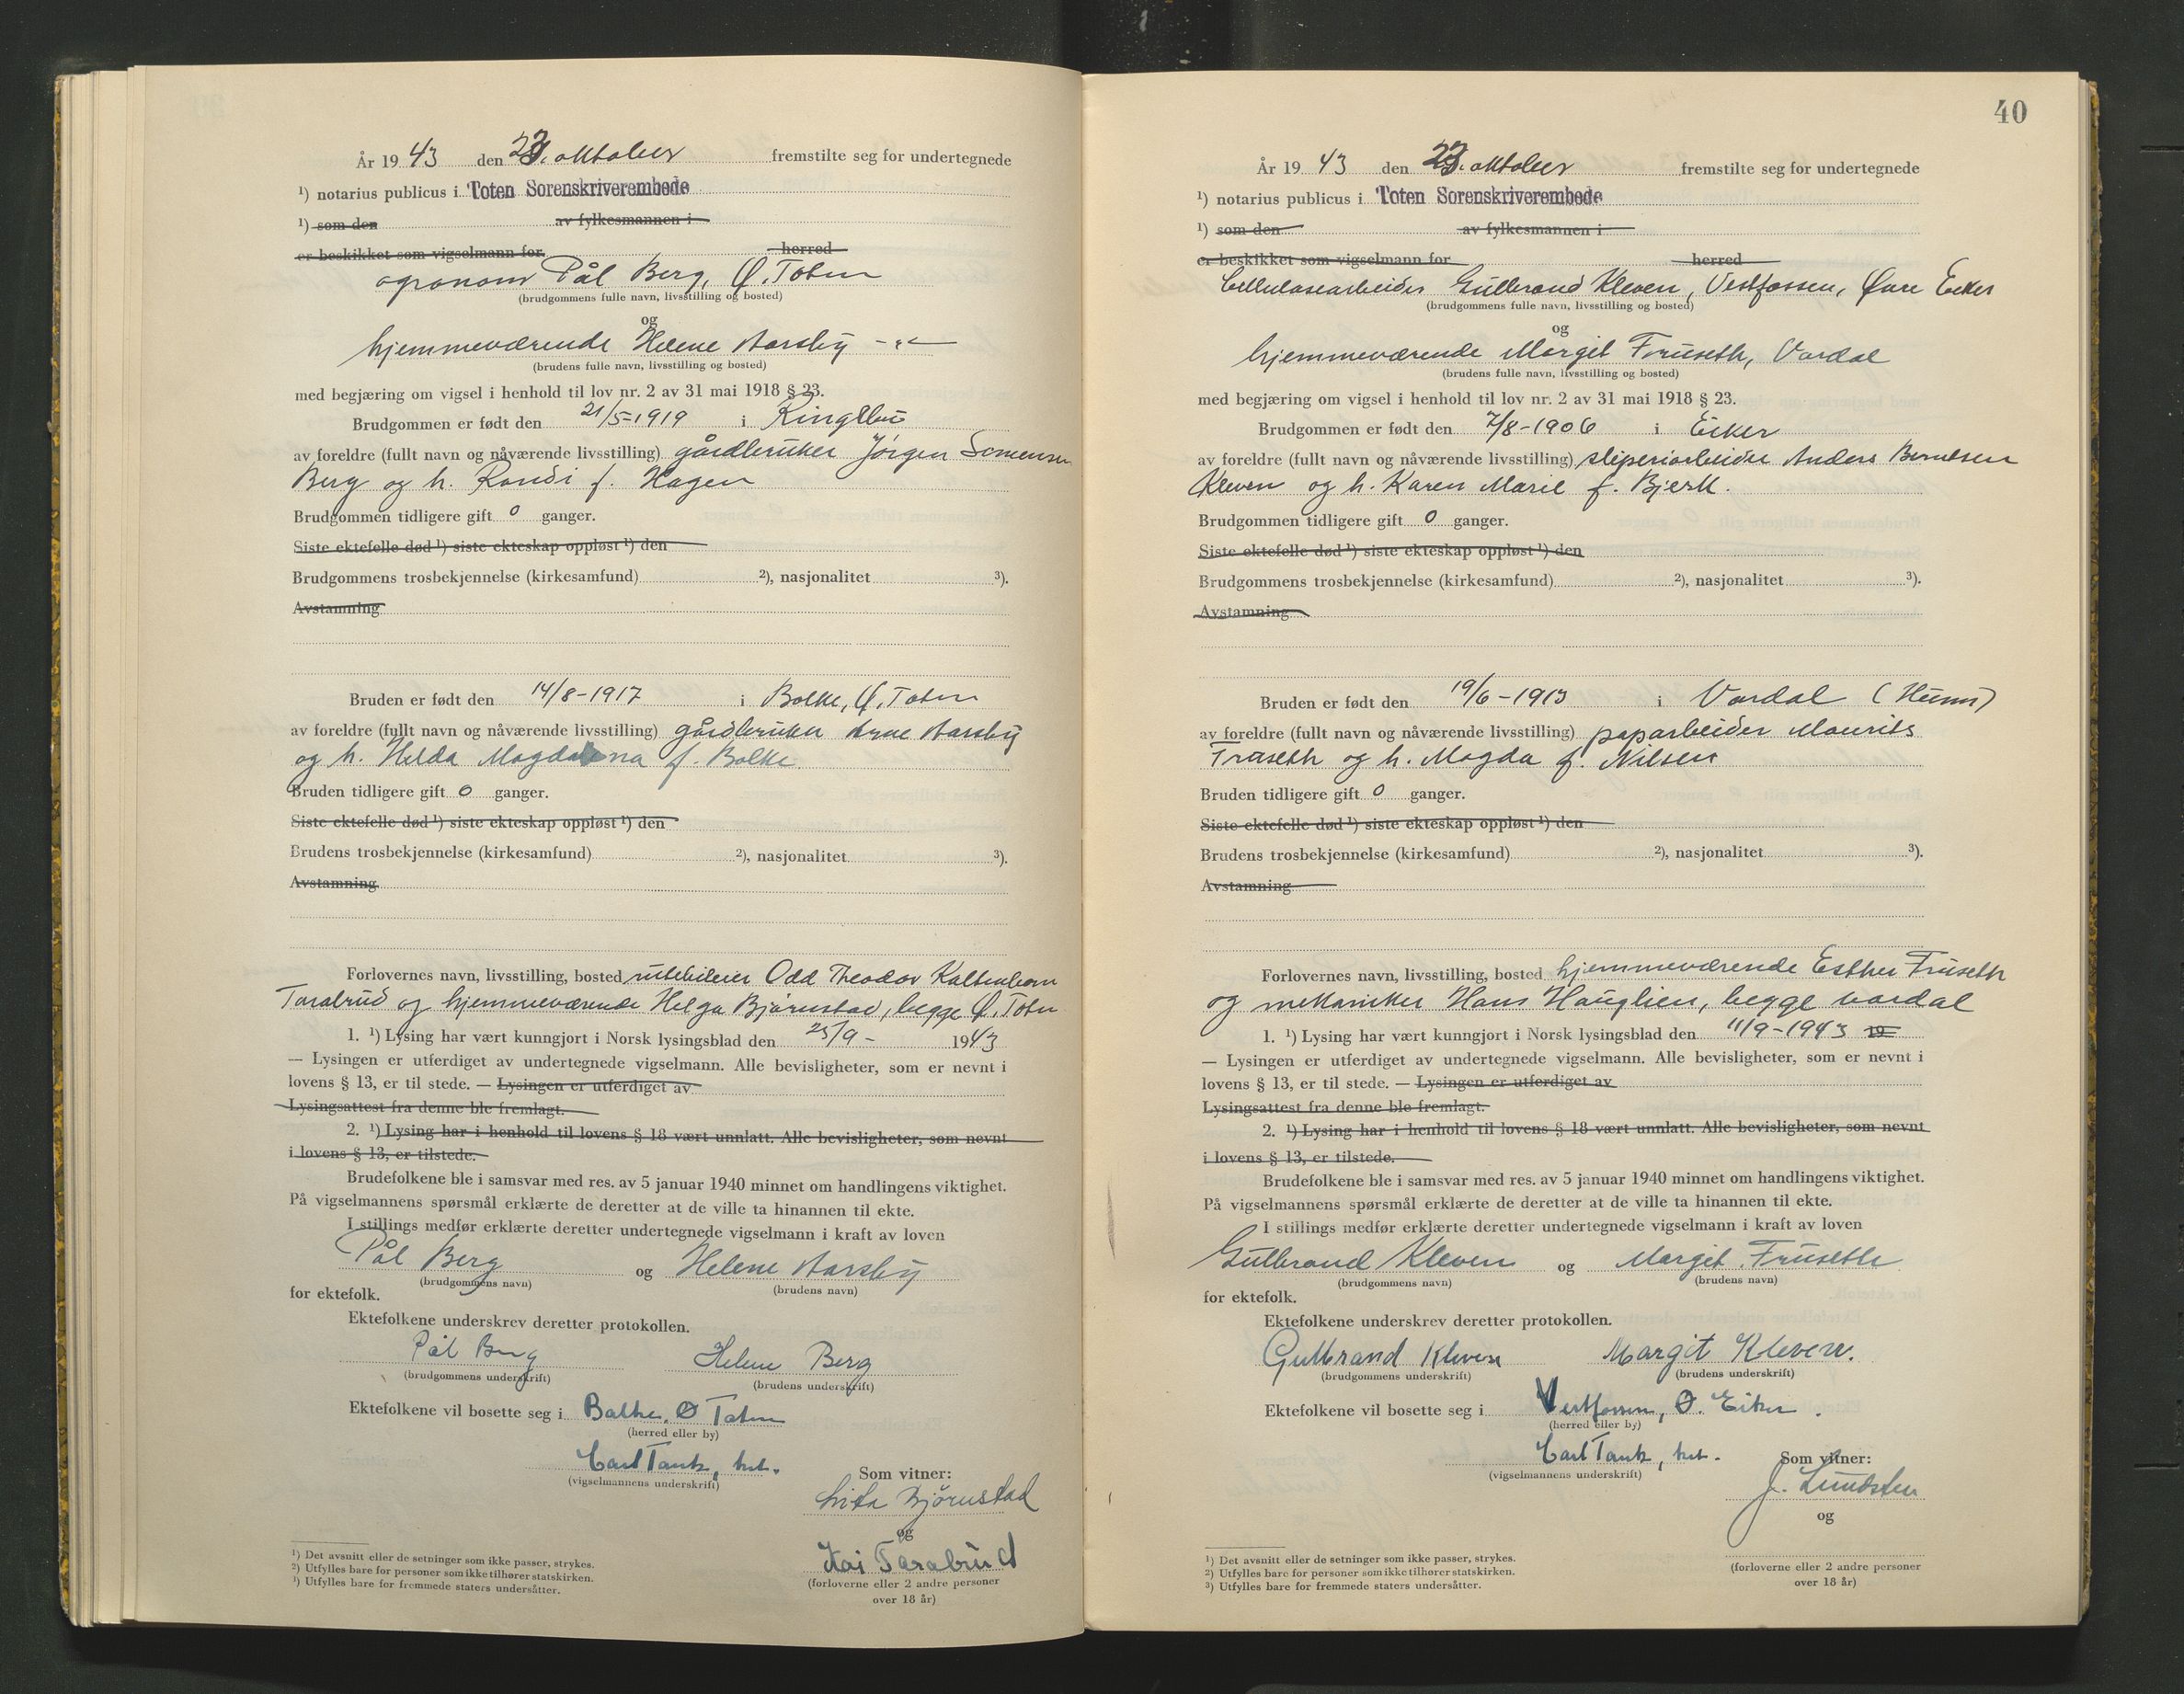 År 1943 den 23. oktober fremstilte seg for undertegnede
¹) notarius publicus i Toten Sorenskriverembede
¹) som den av fylkesmannen i
er beskikket som vigselmann for herred
agronom Pål Berg, Ø. Toten
(brudgommens fulle navn, livsstilling og bosted)
og
hjemmeværende Helene Aarsby - " -
(brudens fulle navn, livsstilling og bosted)
med begjæring om vigsel i henhold til lov nr. 2 av 31 mai 1918 § 23.
Brudgommen er født den 21/5-1919 i Ringebu
av foreldre (fullt navn og nåværende livsstilling) gårdbruker Jørgen
Berg og h. Rondi f. Hagen
Brudgommen tidligere gift 0 ganger.
Siste ektefelle død ¹) siste ekteskap oppløst ¹) den
Brudgommens trosbekjennelse (kirkesamfund) ²), nasjonalitet ³).
Avstamning
Bruden er født den 14/8-1917 i Balke, Ø. Toten
av foreldre (fullt navn og nåværende livsstilling) gårdbruker Arne Aarsby
og h. Helda Magdalena f. Balke
Bruden tidligere gift 0 ganger.
Siste ektefelle død ¹) siste ekteskap oppløst ¹) den
Brudens trosbekjennelse (kirkesamfund) ²), nasjonalitet ³).
Avstamning
Forlovernes navn, livsstilling, bosted rutebileier Odd Theodor Kaltenborn
Tarabrud og hjemmeværende Helga Bjørnstad, begge Ø. Toten
1. ¹) Lysing har vært kunngjort i Norsk lysingsblad den 25/9 - 1943
— Lysingen er utferdiget av undertegnede vigselmann. Alle bevisligheter, som er nevnt i
lovens § 13, er til stede. — Lysingen er utferdiget av
Lysingsattest fra denne ble fremlagt.
2. ¹) Lysing har i henhold til lovens § 18 vært unnlatt. Alle bevisligheter, som nevnt
i lovens § 13, er tilstede.
Brudefolkene ble i samsvar med res. av 5 januar 1940 minnet om handlingens viktighet.
På vigselmannens spørsmål erklærte de deretter at de ville ta hinannen til ekte.
I stillings medfør erklærte deretter undertegnede vigselmann i kraft av loven
Pål Berg og Helene Aarsby
(brudgommens navn) (brudens navn)
for ektefolk.
Ektefolkene underskrev deretter protokollen.
Pål Berg Helene Berg
(brudgommens underskrift) (brudens underskrift)
Ektefolkene vil bosette seg i Balke, Ø Toten
(herred eller by)
Carl Tank, kst.
(vigselmannens underskrift)
Som vitner:
Bjørnstad
og
Kai Tarabrud
(forloverne eller 2 andre personer
over 18 år)
¹) Det avsnitt eller de setninger som ikke passer, strykes.
²) Utfylles bare for personer som ikke tilhører statskirken.
³) Utfylles bare for fremmede staters undersåtter.
40
År 1943 den 23. oktober fremstilte seg for undertegnede
¹) notarius publicus i Toten Sorenskriverembede
¹) som den av fylkesmannen i
er beskikket som vigselmann for herred
Cellulosearbeider Gulbrand Kleven, Vestfossen, Øvre Eiker
(brudgommens fulle navn, livsstilling og bosted)
og
hjemmeværende Margit Fruseth, Vardal
(brudens fulle navn, livsstilling og bosted)
med begjæring om vigsel i henhold til lov nr. 2 av 31 mai 1918 § 23.
Brudgommen er født den 7/8-1906 i Eiker
av foreldre (fullt navn og nåværende livsstilling) sliperiarbeider Anders Berntsen
Kleven og h. Karen Marie f. Bjerk.
Brudgommen tidligere gift 0 ganger.
Siste ektefelle død ¹) siste ekteskap oppløst ¹) den
Brudgommens trosbekjennelse (kirkesamfund) ²), nasjonalitet ³).
Avstamning
Bruden er født den 19/6-1913 i Vardal (Hunn)
av foreldre (fullt navn og nåværende livsstilling) paparbeider Maurits
Fruseth og h. Magda f. Nilsen
Bruden tidligere gift 0 ganger.
Siste ektefelle død ¹) siste ekteskap oppløst ¹) den
Brudens trosbekjennelse (kirkesamfund) ²), nasjonalitet ³).
Avstamning
Forlovernes navn, livsstilling, bosted hjemmeværende Esther Fruseth
og mekaniker Hans Hauglien, begge Vardal
1. ¹) Lysing har vært kunngjort i Norsk lysingsblad den 11/9-1943 19
— Lysingen er utferdiget av undertegnede vigselmann. Alle bevisligheter, som er nevnt i
lovens § 13, er til stede. — Lysingen er utferdiget av
Lysingsattest fra denne ble fremlagt.
2. ¹) Lysing har i henhold til lovens § 18 vært unnlatt. Alle bevisligheter, som nevnt
i lovens § 13, er tilstede.
Brudefolkene ble i samsvar med res. av 5 januar 1940 minnet om handlingens viktighet.
På vigselmannens spørsmål erklærte de deretter at de ville ta hinannen til ekte.
I stillings medfør erklærte deretter undertegnede vigselmann i kraft av loven
Gulbrand Kleven og Margit Fruseth
(brudgommens navn) (brudens navn)
for ektefolk.
Ektefolkene underskrev deretter protokollen.
Gulbrand Kleven Margit Kleven.
(brudgommens underskrift) (brudens underskrift)
Ektefolkene vil bosette seg i Vestfossen, Ø. Eiker.
(herred eller by)
Carl Tank, kst.
(vigselmannens underskrift)
Som vitner:
J. Lundsten
og
(forloverne eller 2 andre personer
over 18 år)
¹) Det avsnitt eller de setninger som ikke passer, strykes.
²) Utfylles bare for personer som ikke tilhører statskirken.
³) Utfylles bare for fremmede staters undersåtter.